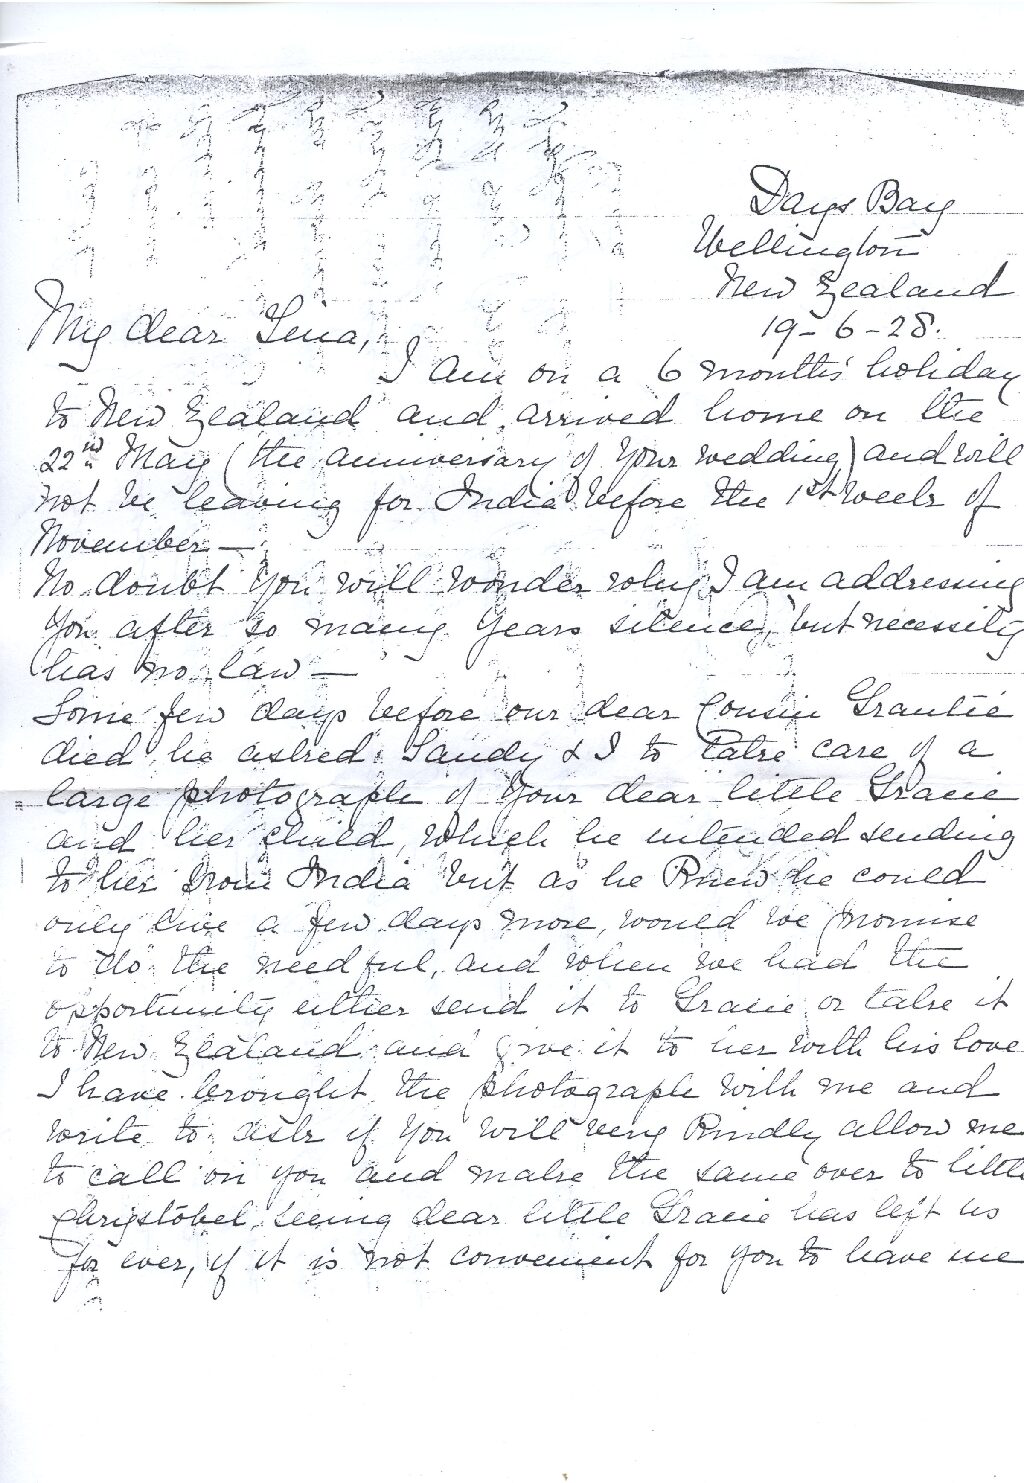 Days Bay
Wellington
New Zealand
19-6-28.
My dear Lena,
I am on a 6 months' holiday
to New Zealand and arrived home on the
22nd May (the anniversary of your wedding) and will
not be leaving for India before the 1st week of
November —
No doubt you will wonder why I am addressing
you after so many years silence, but necessity
has no law —
Some few days before our dear Cousin
died he asked Sandy & I to take care of a
large photograph of your dear little Gracie
and her child, which he intended sending
to her from India but as he knew he could
only live a few days more, would we promise
to do the needful, and when we had the
opportunity either send it to Gracie or take it
to New Zealand and give it to her with his love
I have brought the photograph with me and
write to ask if you will very kindly allow me
to call on you and make the same over to little
Christobel, seeing dear little Gracie has left us
for ever, if it is not convenient for you to have me